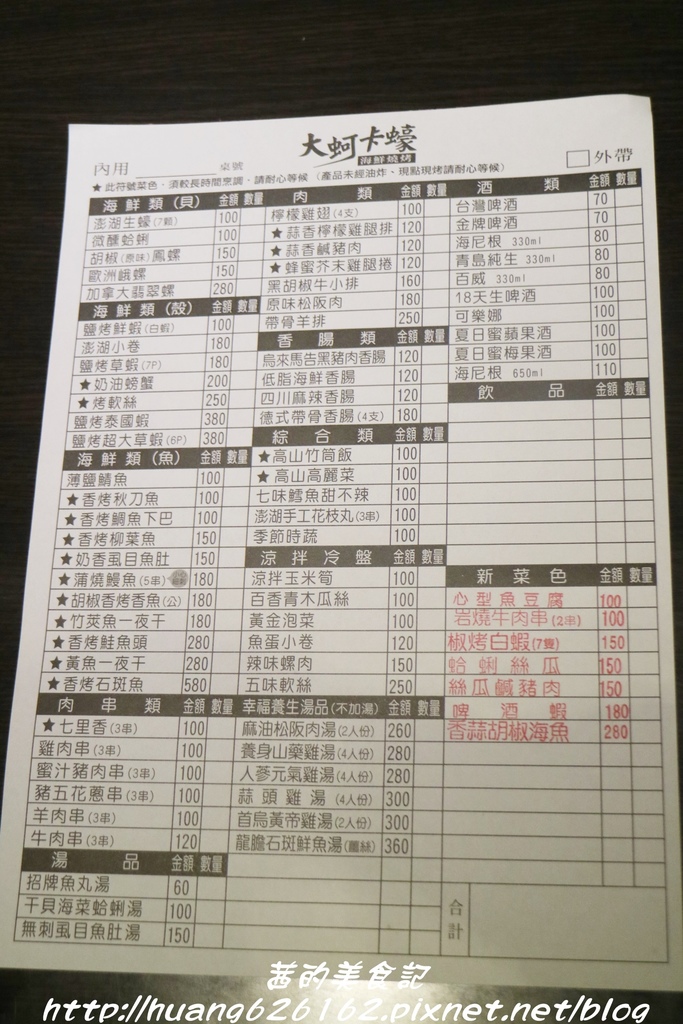 大蚵卡蠔
海鮮燒烤
內用 桌號 外帶
★此符號菜色,須較長時間烹調,請耐心等候 (產品未經油炸、現點現烤請耐心等候)
海鮮類(貝) 金額 數量
澎湖生蠔(7顆) 100
微醺蛤蜊 100
胡椒(原味)鳳螺 150
歐洲峨螺 150
加拿大翡翠螺 280
海鮮類(殼) 金額 數量
鹽烤鮮蝦(白蝦) 100
澎湖小卷 180
鹽烤草蝦(7P) 180
★奶油螃蟹 200
★烤軟絲 250
鹽烤泰國蝦 380
鹽烤超大草蝦(6P) 380
海鮮類(魚) 金額 數量
薄鹽鯖魚 100
★香烤秋刀魚 100
★香烤鯛魚下巴 100
★香烤柳葉魚 150
★奶香虱目魚肚 150
★蒲燒鰻魚(5串) 180
★胡椒香烤香魚(公) 180
★竹莢魚一夜干 180
★香烤鮭魚頭 280
★黃魚一夜干 280
★香烤石斑魚 580
肉串類 金額 數量
★七里香(3串) 100
雞肉串(3串) 100
蜜汁豬肉串(3串) 100
豬五花蔥串(3串) 100
羊肉串(3串) 100
牛肉串(3串) 120
湯品 金額 數量
招牌魚丸湯 60
干貝海菜蛤蜊湯 100
無刺虱目魚肚湯 150
肉類 金額 數量
檸檬雞翅(4支) 100
★蒜香檸檬雞腿排 120
★蒜香鹹豬肉 120
★蜂蜜芥末雞腿捲 120
黑胡椒牛小排 160
原味松阪肉 180
帶骨羊排 250
香腸類 金額 數量
烏來馬告黑豬肉香腸 120
低脂海鮮香腸 120
四川麻辣香腸 120
德式帶骨香腸(4支) 180
綜合類 金額 數量
★高山竹筒飯 100
★高山高麗菜 100
七味鱈魚甜不辣 100
澎湖手工花枝丸(3串) 100
季節時蔬 100
涼拌冷盤 金額 數量
涼拌玉米筍 100
百香青木瓜絲 100
黃金泡菜 100
魚蛋小卷 120
辣味螺肉 150
五味軟絲 250
幸福養生湯品(不加湯) 金額 數量
麻油松阪肉湯(2人份) 260
養身山藥雞湯(4人份) 280
人蔘元氣雞湯(4人份) 280
蒜頭雞湯(4人份) 300
首烏黃帝雞湯(2人份) 300
龍膽石斑鮮魚湯(薑絲) 360
酒類 金額 數量
台灣啤酒 70
金牌啤酒 70
海尼根 330ml 80
青島純生 330ml 80
百威 330ml 80
18天生啤酒 100
可樂娜 100
夏日蜜蘋果酒 100
夏日蜜梅果酒 100
海尼根 650ml 110
飲品 金額 數量
新菜色 金額 數量
心型魚豆腐 100
岩燒牛肉串(2串) 100
椒烤白蝦(7隻) 150
蛤蜊絲瓜 150
絲瓜鹹豬肉 150
啤酒蝦 180
香蒜胡椒海魚 280
合計
茜的美食記
http://huang626162.pixnet.net/blog